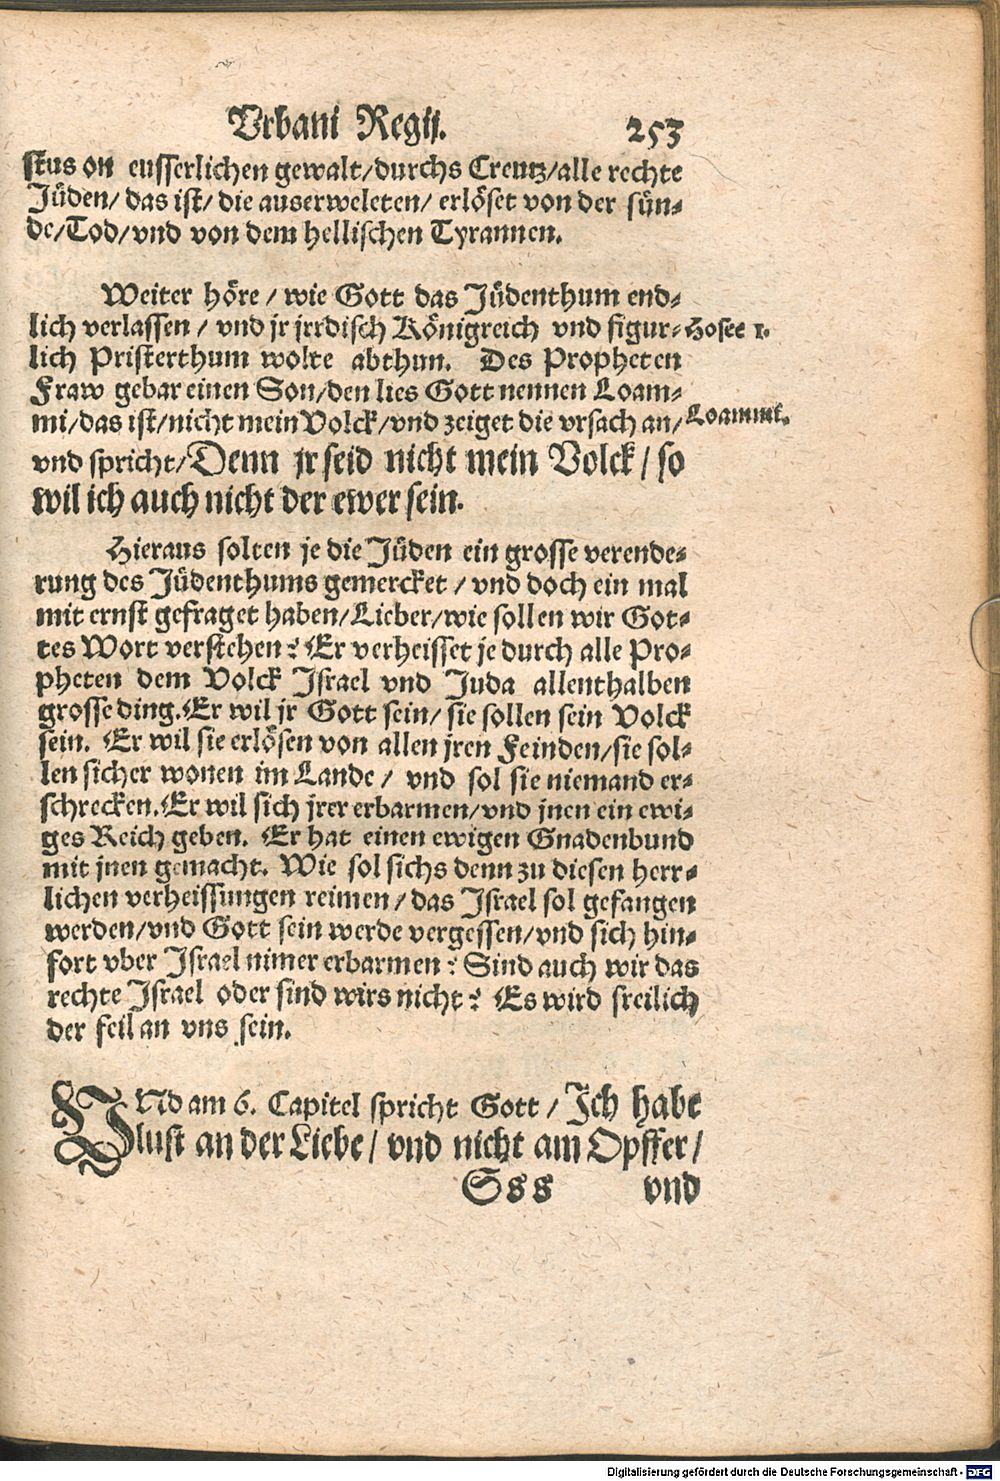 Vrbani Regij. 253
stus on eusserlichen gewalt/durchs Creutz/alle rechte
Jüden/ das ist/ die auserweleten/ erlöset von der sün-
de/Tod/vnd von dem hellischen Tyrannen.
Weiter höre / wie Gott das Jüdenthum end-
lich verlassen / vnd jr jrrdisch Königreich vnd figur- Hosee 1.
lich Pristerthum wolte abthun. Des Propheten
Fraw gebar einen Son/den lies Gott nennen Loam-
mi/das ist/nicht mein Volck/vnd zeiget die vrsach an/ Loammi.
vnd spricht/Denn jr seid nicht mein Volck / so
wil ich auch nicht der ewer sein.
Hieraus solten je die Jüden ein grosse verende-
rung des Jüdenthums gemercket / vnd doch ein mal
mit ernst gefraget haben/Lieber/wie sollen wir Got-
tes Wort verstehen? Er verheisset je durch alle Pro-
pheten dem Volck Israel vnd Juda allenthalben
grosse ding.Er wil jr Gott sein/ sie sollen sein Volck
sein. Er wil sie erlösen von allen jren Feinden/sie sol-
len sicher wonen im Lande / vnd sol sie niemand er-
schrecken.Er wil sich jrer erbarmen/vnd jnen ein ewi-
ges Reich geben. Er hat einen ewigen Gnadenbund
mit jnen gemacht. Wie sol sichs denn zu diesen herr-
lichen verheissungen reimen / das Israel sol gefangen
werden/vnd Gott sein werde vergessen/vnd sich hin-
fort vber Israel nimer erbarmen? Sind auch wir das
rechte Israel oder sind wirs nicht? Es wird freilich
der feil an vns sein.
VNd am 6. Capitel spricht Gott / Ich habe
lust an der Liebe / vnd nicht am Opffer /
Sss vnd
Digitalisierung gefördert durch die Deutsche Forschungsgemeinschaft - DFG